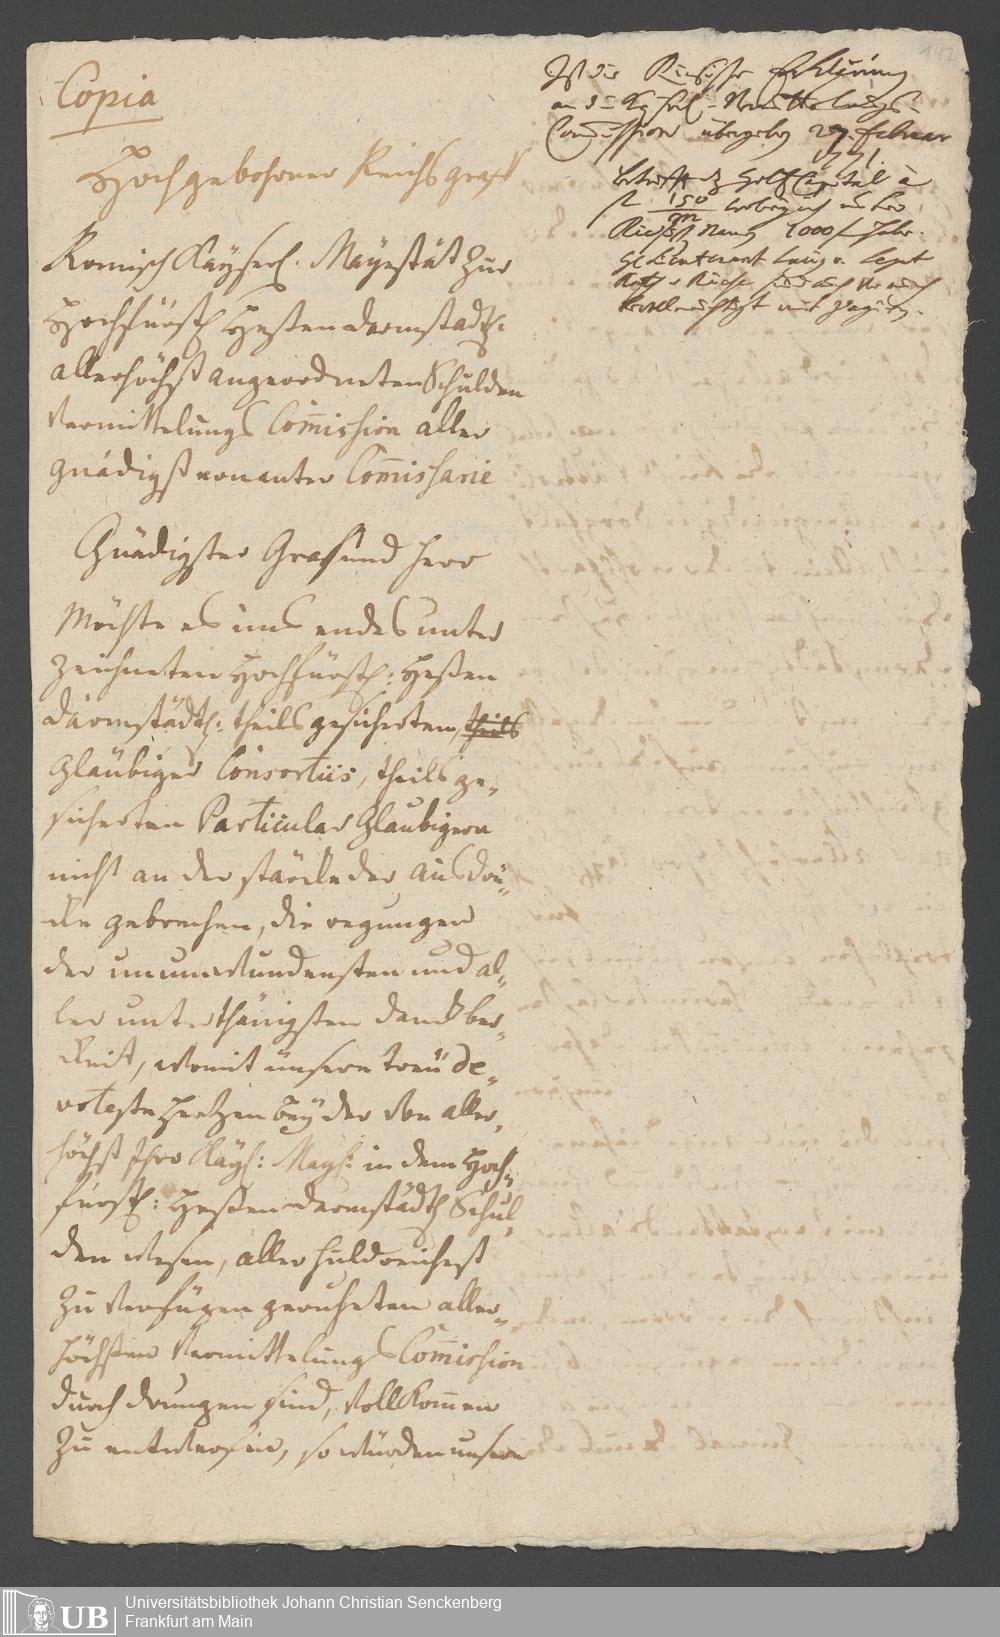 142
Copia
Hochgebohrner Reichsgraff
Romisch Kayserl. Mayestät zur
Hochfürstl Heßen darmstadtl:
allerhöchst angeordneten Schulden
Vermittelungs Com̄ission aller
gnädigst ernanter Com̄issarie
Gnädigster Graf und Herr
Möchte es uns endes unter
zeichneten Hochfürstl: Heßen
darmstädtl: theils gesicherten, theils
Gläubiger Consortiis, theils ge„
sicherten Particular Glaubigern
nicht an der stärcke der Ausdrü„
cke gebrechen, die regungen
der unumwundensten und al„
ler unterthänigsten danckbar„
keit, womit unsere treu de„
voteste Hertzen beÿ der von aller„
höchst Ihro Kayß: Mayß: in dem Hoch„
fürstl: Heßen darmstädtl Schul„
den wesen, aller huldreichest
zu verfügen geruheten aller„
höchsten Vermittelungs Com̄ission
durch drungen sind, vollkom̄en
zu entwerfen, so würden unsere
Ist die Erklärung
an d Kayserl. Vermittelungs-
Commission übergeben 27. februar
1771.
betrifft Capital à
fl 150/m
1000 f
Universitätsbibliothek Johann Christian Senckenberg
Frankfurt am Main
UB